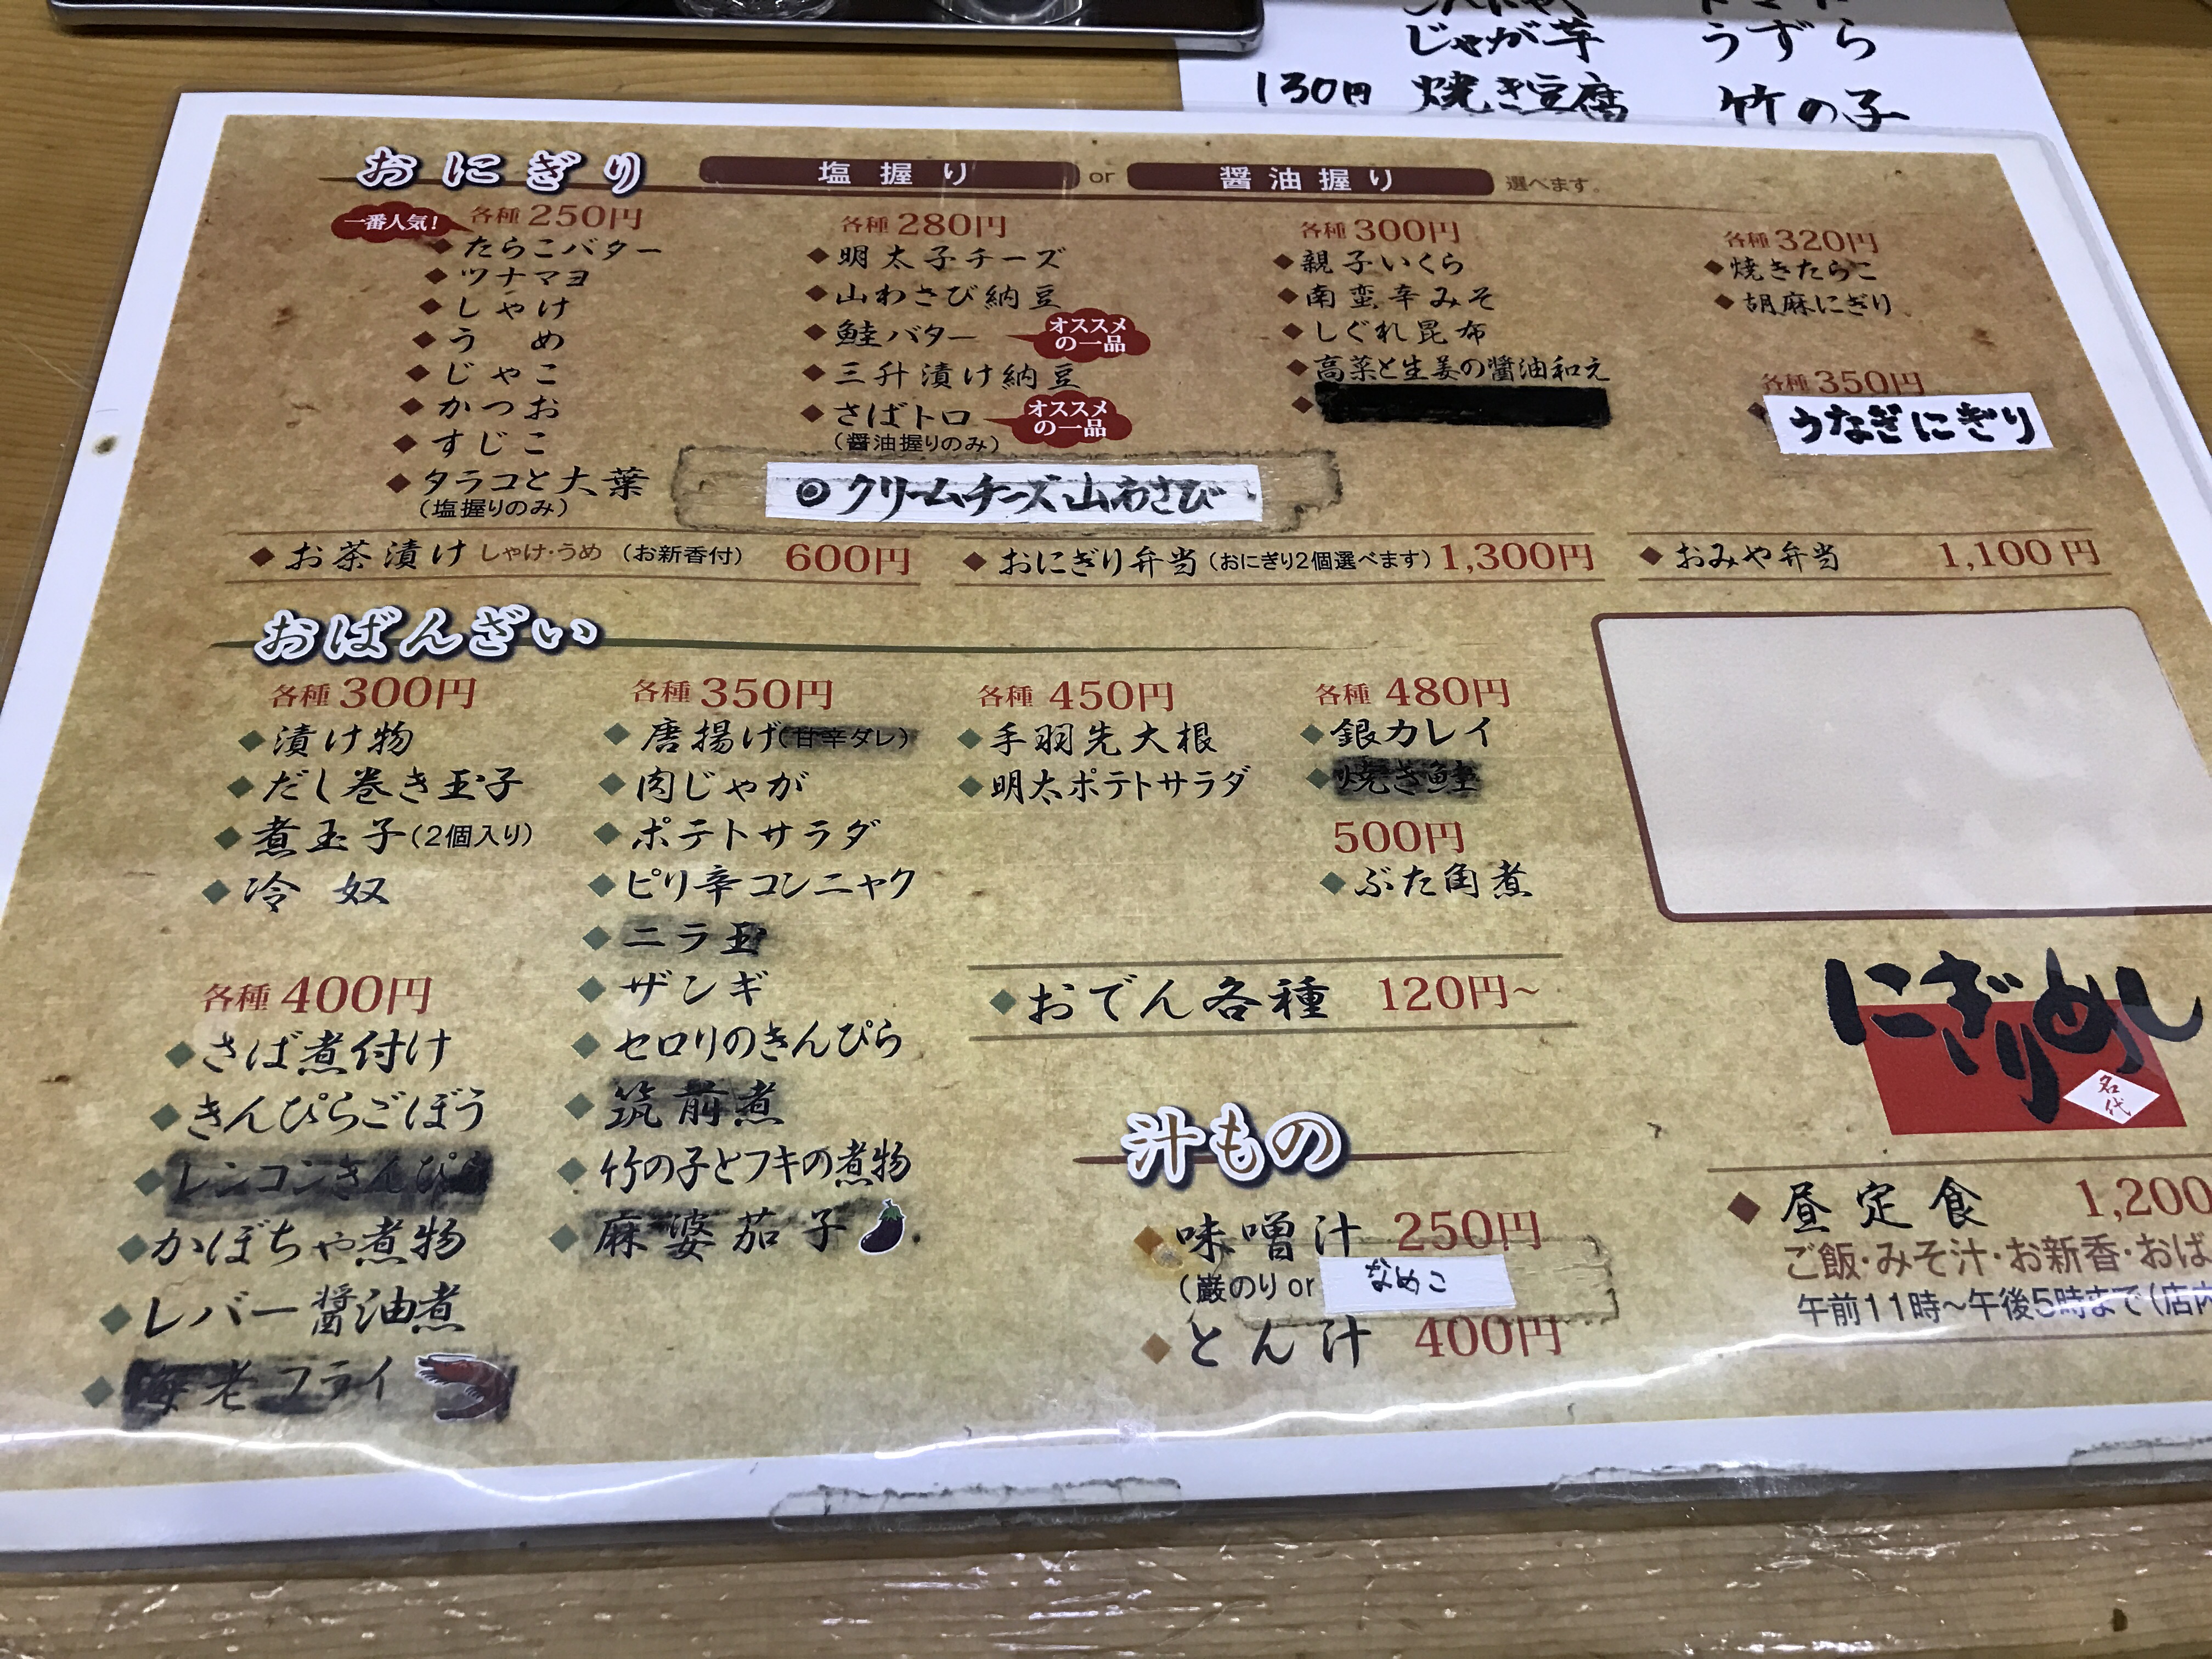 じゃが芋 うずら
130円 焼き豆腐 竹の子
おにぎり 塩握り or 醤油握り 選べます。
一番人気!
各種250円
たらこバター
ツナマヨ
しゃけ
うめ
じゃこ
かつお
すじこ
タラコと大葉
(塩握りのみ)
各種280円
明太子チーズ
山わさび納豆
鮭バター
オススメの一品
三升漬け納豆
さばトロ
オススメの一品
(醤油握りのみ)
◎クリームチーズ山わさび
各種300円
親子いくら
南蛮辛みそ
しぐれ昆布
高菜と生姜の醤油和え
各種320円
焼きたらこ
胡麻にぎり
各種350円
うなぎにぎり
お茶漬け しゃけ・うめ (お新香付) 600円
おにぎり弁当(おにぎり2個選べます) 1,300円
おみや弁当 1,100円
おばんざい
各種300円
漬け物
だし巻き玉子
煮玉子(2個入り)
冷奴
各種400円
さば煮付け
きんぴらごぼう
レンコンきんぴら
かぼちゃ煮物
レバー醤油煮
海老フライ
各種350円
唐揚げ(甘辛ダレ)
肉じゃが
ポテトサラダ
ピリ辛コンニャク
ニラ玉
ザンギ
セロリのきんぴら
筑前煮
竹の子とフキの煮物
麻婆茄子
各種450円
手羽先大根
明太ポテトサラダ
各種480円
銀カレイ
焼き鮭
500円
ぶた角煮
おでん各種 120円~
汁もの
味噌汁 250円
(巌のり or なめこ
とん汁 400円
にぎりめし
名代
昼定食 1,200
ご飯・みそ汁・お新香・おば
午前11時~午後5時まで(店内